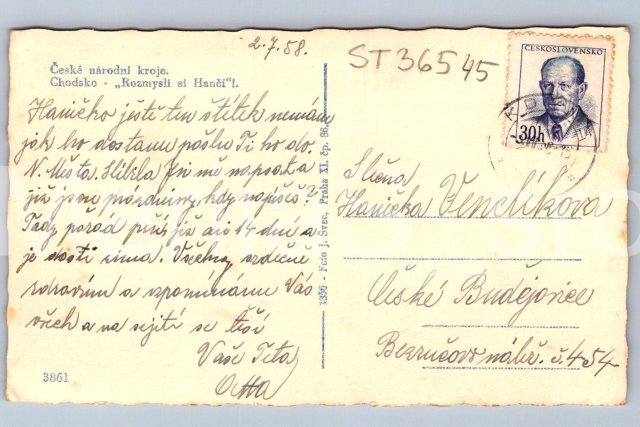 2.7.58.
ST 36545
České národní kroje.
Chodsko - „Rozmysli si Hančí"!.
ČESKOSLOVENSKO
30h
Haničko ještě ten štítek nemám
jak ho dostanu pošlu Ti ho do
N. Města. Slíbila jsi mě napsat a
již jsou prázdniny, kdy napíšeš?
Tady pořád prší již asi 14 dní a
je dosti zima. Všechny srdečně
zdravím a vzpomínáme Vás
všech a na sejití se těší
Vaše Teta
Otta
3861
1356 - Foto J. Svec, Praha XI. čp. 36.
Slečna
Hanička Venclíkova
České Budějovice
Bezručovo nábř. č. 454